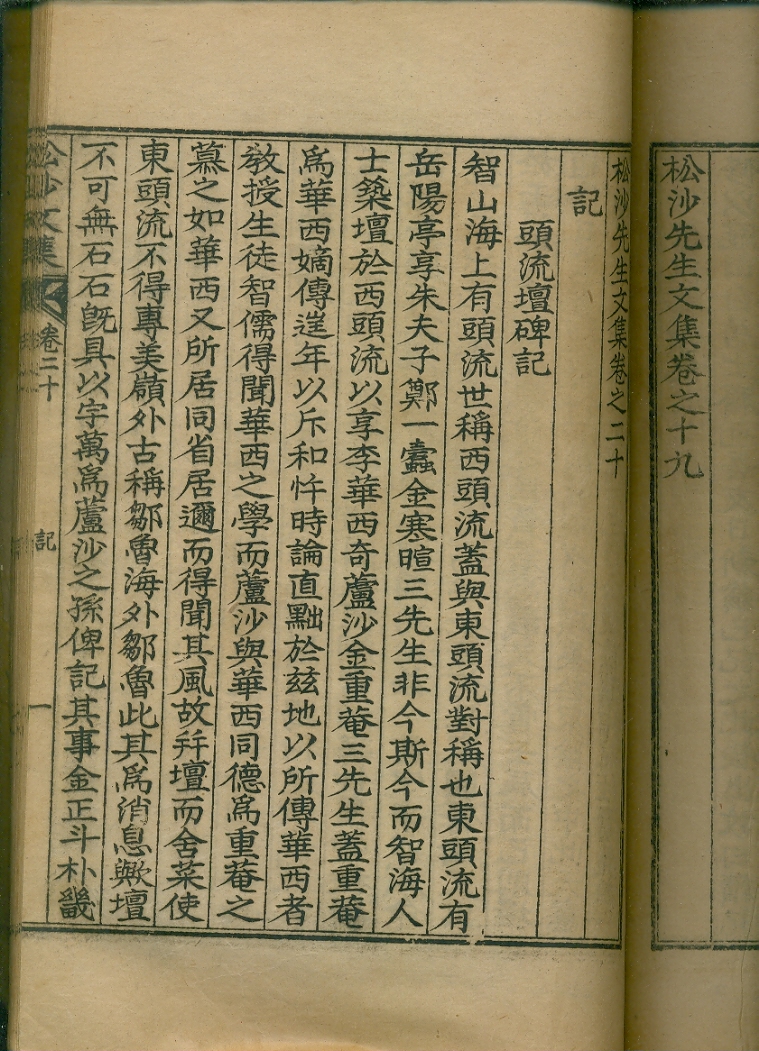 松沙先生文集卷之十九
松沙先生文集卷之二十
記
頭流壇碑記
智山海上有頭流世稱西頭流蓋與東頭流對稱也東頭流有
岳陽亭享朱夫子鄭一蠹金寒暄三先生非今斯今而智海人
士築壇於西頭流以享李華西奇蘆沙金重菴三先生蓋重菴
爲華西嫡傳逬年以斥和忤時論直黜於玆地以所傳華西者
敎授生徒智儒得聞華西之學而蘆沙與華西同德爲重菴之
慕之如華西又所居同省居邇而得聞其風故幷壇而舍菜使
東頭流不得專美嶺外古稱鄒魯海外鄒魯此其爲消息歟壇
不可無石石旣具以宇萬爲蘆沙之孫俾記其事金正斗朴畿
松沙文集
卷二十
記
一